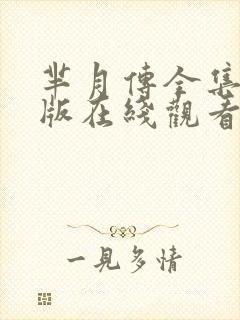 芈月傳全集
版在綫觀看
一見多情